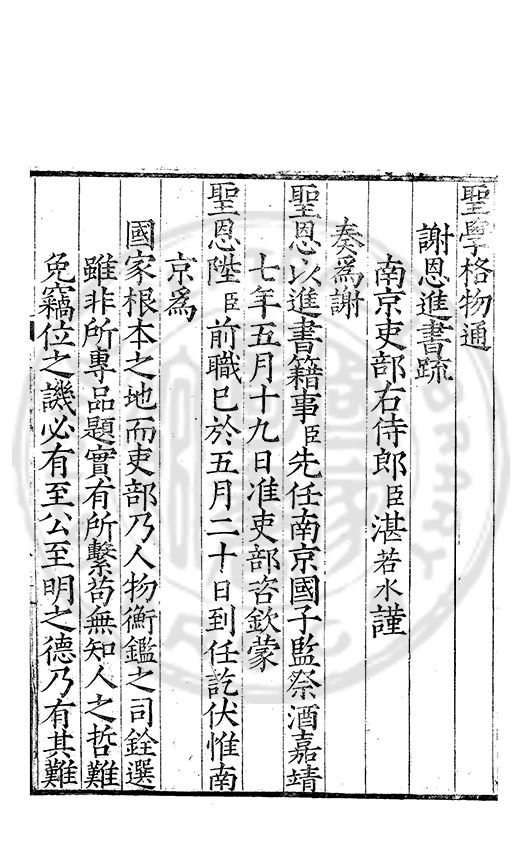 聖學格物通
謝恩進書疏
南京吏部右侍郎臣湛若水謹
奏爲謝
聖恩以進書籍事臣先任南京國子監祭酒嘉靖
七年五月十九日准吏部咨欽蒙
聖恩陞臣前職已於五月二十日到任訖伏惟南
京爲
國家根本之地而吏部乃人物衡鑑之司銓選
雖非所專品題實有所繫苟無知人之哲難
免竊位之譏必有至公至明之德乃有其難